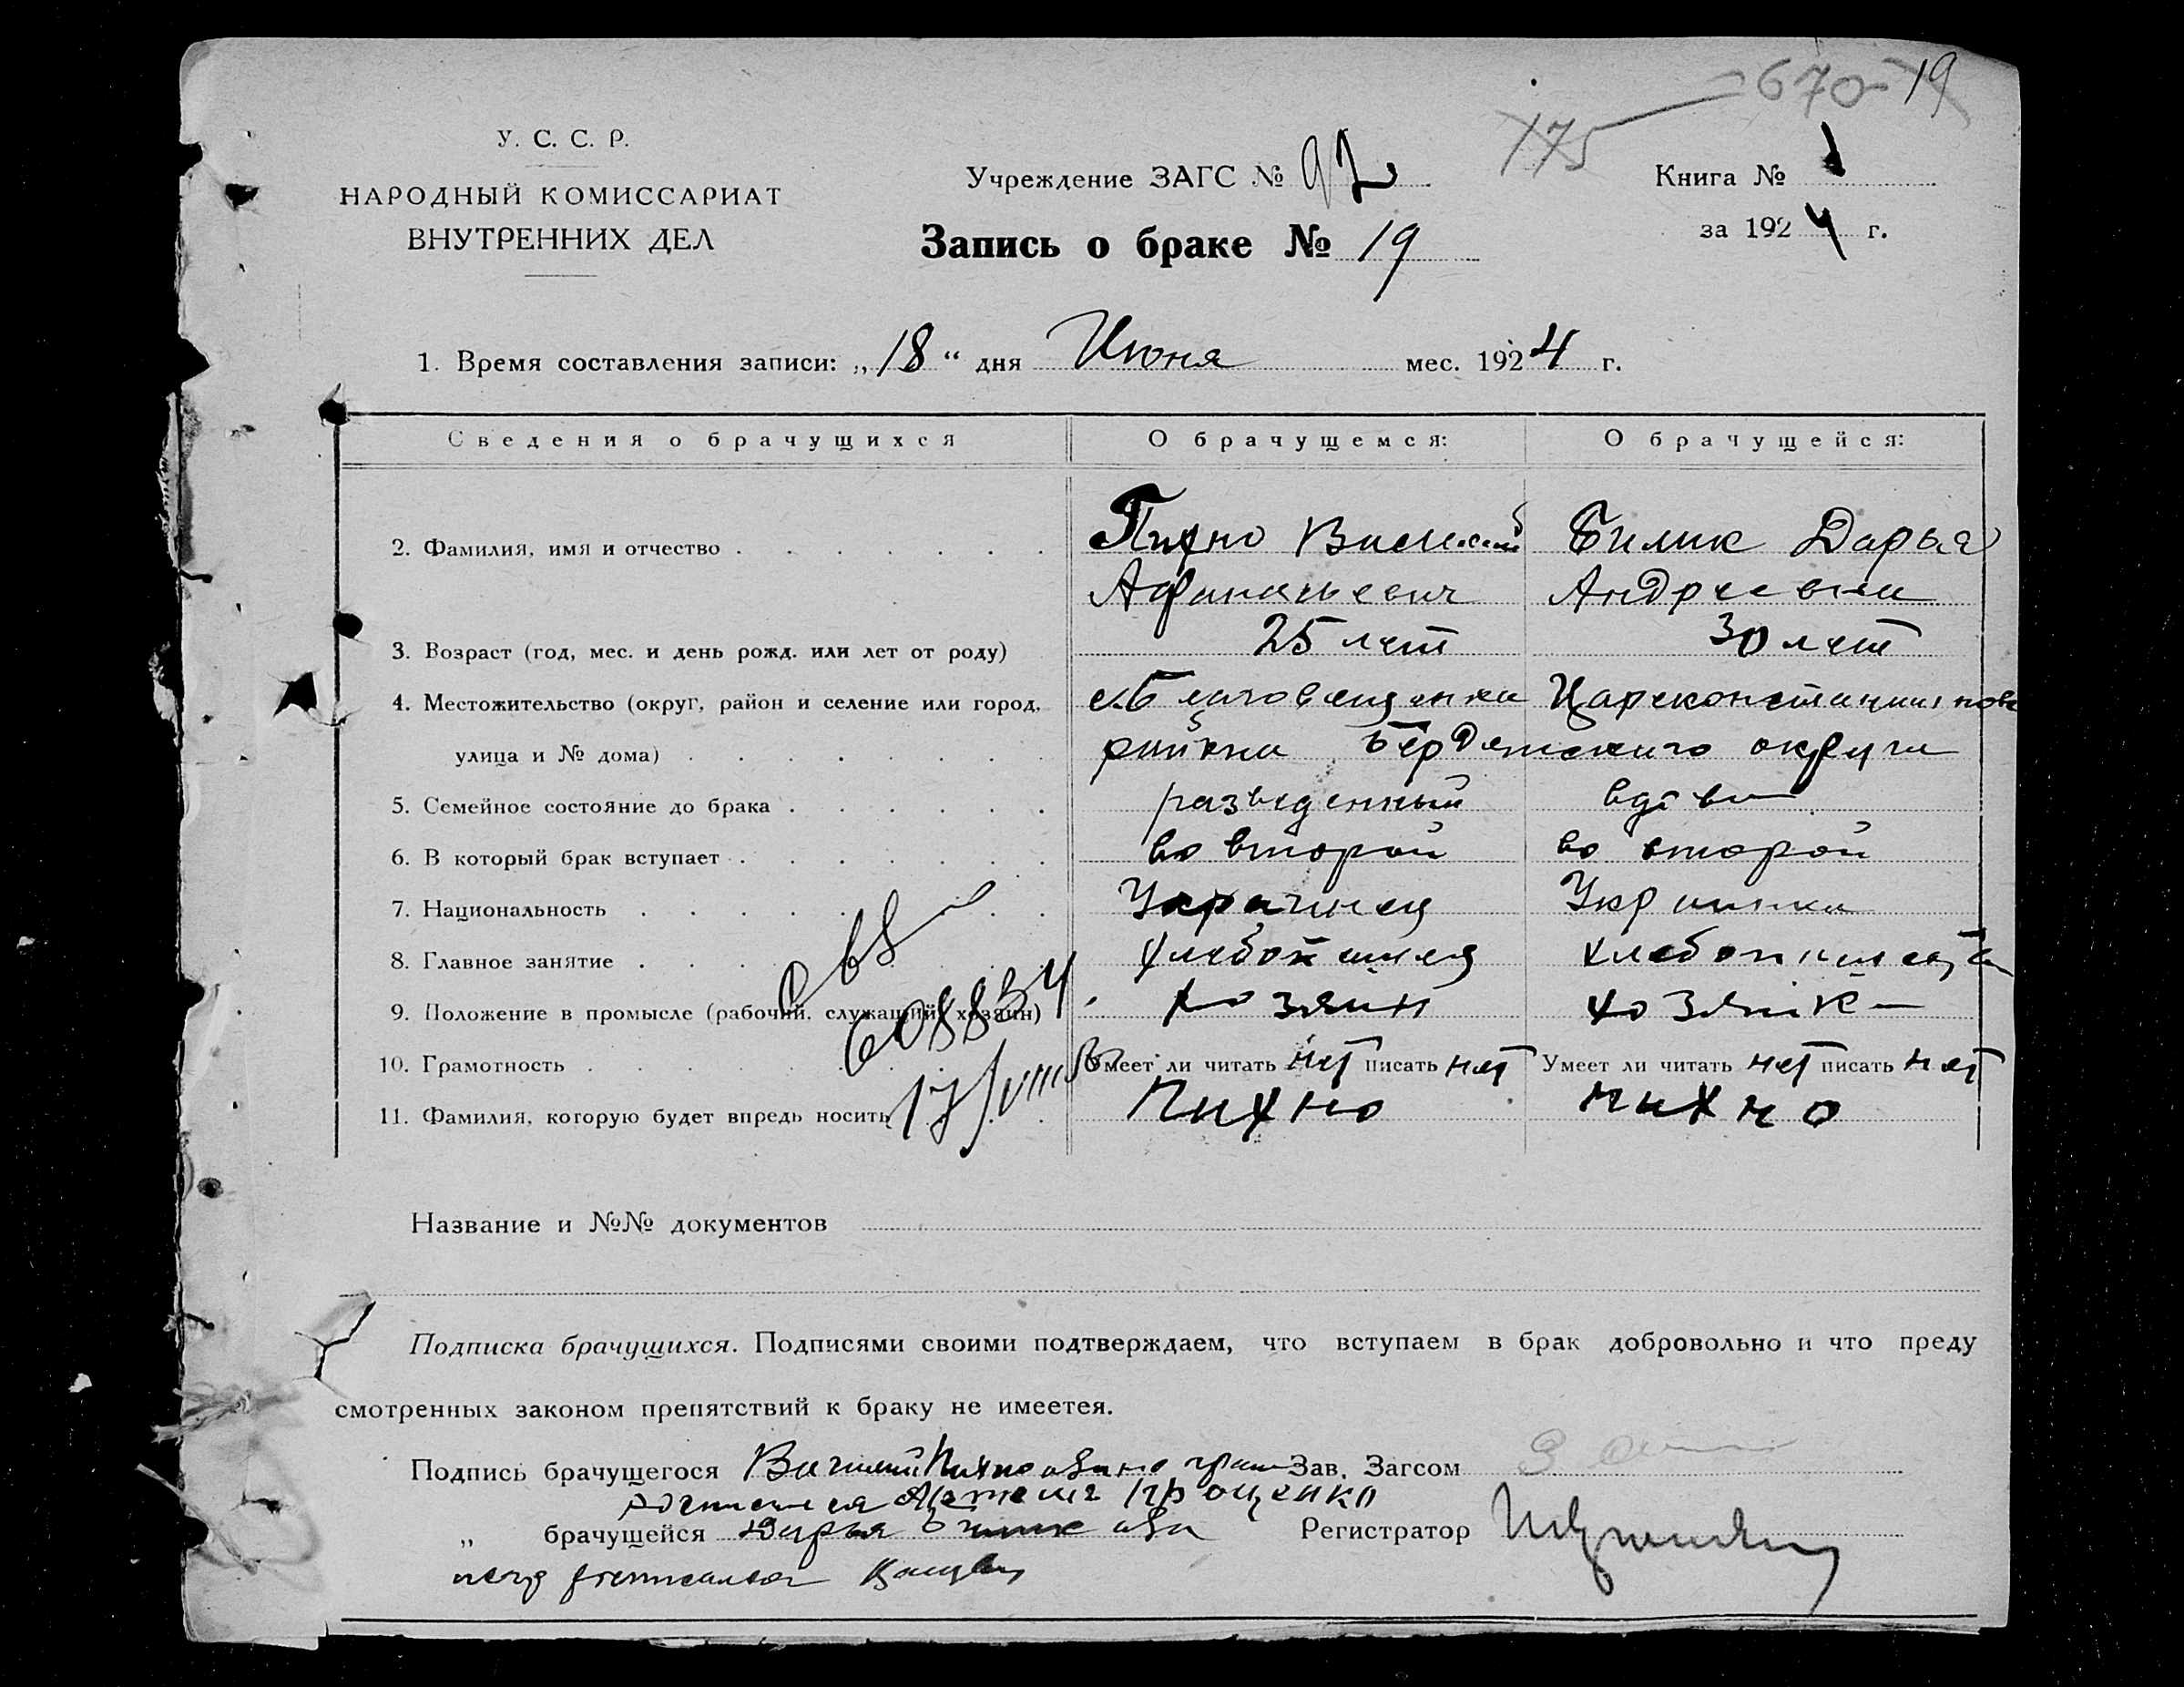 670 19
175
У. С. С. Р.
НАРОДНЫЙ КОМИССАРИАТ
ВНУТРЕННИХ ДЕЛ
Учреждение ЗАГС № 92
Книга № 1
Запись о браке № 19
за 1924 г.
1. Время составления записи: „18“ дня Июня мес. 1924 г.
Сведения о брачущихся О брачущемся: О брачущейся:
2. Фамилия, имя и отчество Пихно Василий Билик Дарья
Афанасьевич Андреевна
3. Возраст (год, мес. и день рожд. или лет от роду) 25 лет 30 лет
4. Местожительство (округ, район и селение или город, с. Благовещенка Цареконстантинов
улица и № дома) района Бердянского округа
5. Семейное состояние до брака разведенный вдова
6. В который брак вступает во второй во второй
7. Национальность Украинец Украинка
8. Главное занятие хлебопашец
9. Положение в промысле (рабочий, служащий, хозяин) хозяин хозяйка
608834
10. Грамотность Умеет ли читать нет писать нет Умеет ли читать нет писать нет
17/VIII
11. Фамилия, которую будет впредь носить Пихно Пихно
Название и №№ документов
Подписка брачущихся. Подписями своими подтверждаем, что вступаем в брак добровольно и что преду
смотренных законом препятствий к браку не имеетея.
Подпись брачущегося Василий Пихно а за него грам Зав. Загсом
Проценко
„ брачущейся Дарья Билик а за Регистратор